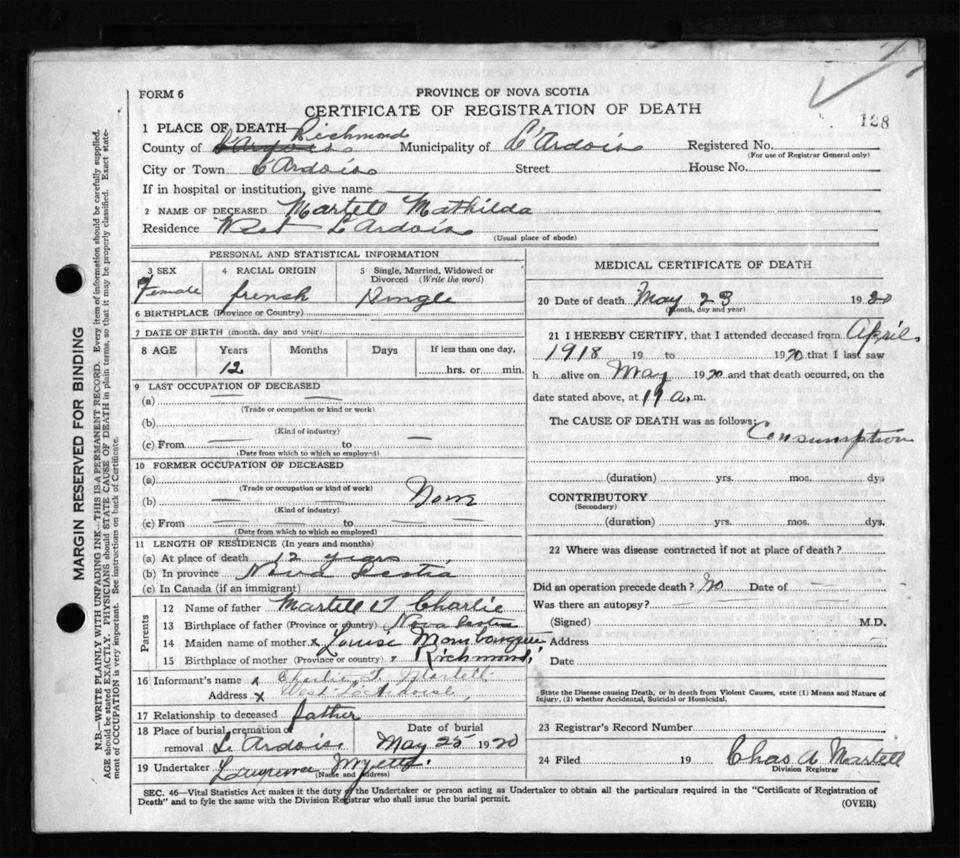 128
FORM 6
PROVINCE OF NOVA SCOTIA
CERTIFICATE OF REGISTRATION OF DEATH
1 PLACE OF DEATH Richmond
County of Municipality of L'Ardois Registered No.
(For use of Registrar General only)
City or Town L'Ardois Street House No.
If in hospital or institution, give name
2 NAME OF DECEASED Martell Mathilda
Residence West L'Ardois
(Usual place of abode)
PERSONAL AND STATISTICAL INFORMATION
3 SEX 4 RACIAL ORIGIN 5 Single, Married, Widowed or Divorced (Write the word)
Female french Single
6 BIRTHPLACE (Province or Country)
7 DATE OF BIRTH (month, day and year)
8 AGE Years Months Days If less than one day,
12 hrs. or min.
9 LAST OCCUPATION OF DECEASED
(a)
(Trade or occupation or kind or work)
(b)
(Kind of industry)
(c) From to
(Date from which to which so employed)
10 FORMER OCCUPATION OF DECEASED
(a)
(Trade or occupation or kind of work)
(b) None
(Kind of industry)
(c) From to
(Date from which to which so employed)
11 LENGTH OF RESIDENCE (In years and months)
(a) At place of death 12 years
(b) In province Nova Scotia
(c) In Canada (if an immigrant)
Parents
12 Name of father Martell T Charlie
13 Birthplace of father (Province or country) Nova Scotia
14 Maiden name of mother x Louise
15 Birthplace of mother (Province or country) Richmond
16 Informant's name x Charlie T Martell
Address x West L'Ardoise
17 Relationship to deceased father
18 Place of burial, cremation or removal L'Ardois Date of burial May 25 1920
19 Undertaker Laurence
(Name and address)
MEDICAL CERTIFICATE OF DEATH
20 Date of death May 23 1920
(Month, day and year)
21 I HEREBY CERTIFY, that I attended deceased from April
1918 19 to 1920 that I last saw
h alive on May 1920 and that death occurred, on the
date stated above, at a.m.
The CAUSE OF DEATH was as follows:
Consumption
(duration) yrs. mos. dys
CONTRIBUTORY
(Secondary)
(duration) yrs. mos. dys.
22 Where was disease contracted if not at place of death?
Did an operation precede death? No Date of
Was there an autopsy?
(Signed) M.D.
Address
Date
State the Disease causing Death, or in death from Violent Causes, state (1) Means and Nature of
Injury, (2) whether Accidental, Suicidal or Homicidal.
23 Registrar's Record Number
24 Filed 19 Chas A Martell
Division Registrar
SEC. 46—Vital Statistics Act makes it the duty of the Undertaker or person acting as Undertaker to obtain all the particulars required in the "Certificate of Registration of
Death" and to fyle the same with the Division Registrar who shall issue the burial permit.
(OVER)
MARGIN RESERVED FOR BINDING
N.B.—WRITE PLAINLY WITH UNFADING INK—THIS IS A PERMANENT RECORD. Every item of information should be carefully supplied.
AGE should be stated EXACTLY. PHYSICIANS should STATE CAUSE OF DEATH in plain terms, so that it may be properly classified. Exact state-
ment of OCCUPATION is very important. See instructions on back of Certificate.